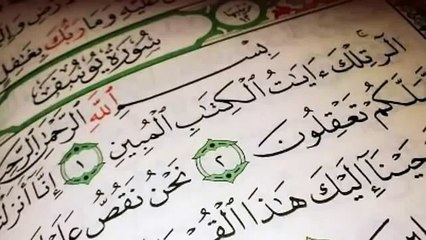 عَلَيْهِ وَمَا رَبُّكَ بِغَٰفِلٍ
سُورَةُ يُوسُفَ
بِسْمِ ٱللَّهِ ٱلرَّحْمَٰنِ ٱلرَّحِيمِ
الٓر تِلْكَ ءَايَٰتُ ٱلْكِتَٰبِ ٱلْمُبِينِ ١ إِنَّا أَنزَلْنَ
لَّكُمْ تَعْقِلُونَ ٢ نَحْنُ نَقُصُّ عَلَيْ
حَيْنَآ إِلَيْكَ هَٰذَا ٱلْقُرْ